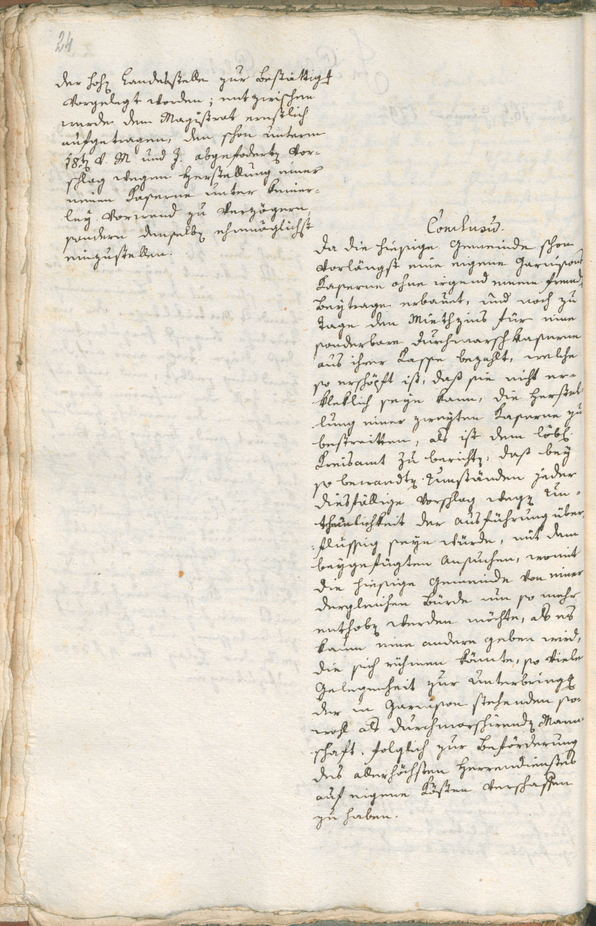 24
der hohen Landesstelle zur Bestättigt
vorgelegt worden; mitzwischen
werde dem Magistrat ernstlich
aufgetragen, den schon unterm
18t v. M. und J. abgefoderten Vor-
schlag wegen Herstellung einer
neuen Kaserne unter keiner-
ley Vorwand zu verzögern,
sondern denselben ehemöglichst
einzustellen.
Conclusum.
Da die hiesige Gemeinde schon
vorlängst eine eigene Garnisons
Kaserne ohne irgend einem fremd
Beytrage erbauet, und noch zu
Tage den Miethzins für eine
sonderbare Durchmarsch Kaserne
aus ihrer Kasse bezahlt, welche
so erschöpft ist, daß sie nicht er-
klecklich seyn kann, die Herstel
lung einer zweyten Kaserne zu
bestreitten, als ist dem löbl.
Kreisamt zu berichten, daß bey
so bewandten Umständen jeder
diesfällige Vorschlag wegen Un-
thunlichkeit der Ausführung über
flüssig seyn würde, mit dem
beygefügten Ansuchen, womit
die hiesige Gemeinde von einer
dergleichen Bürde um so mehr
enthoben werden möchte, als es
kaum eine andere geben wird,
die sich rühmen könnte, so viele
Gelegenheit zur Unterbringung
der in Garnison stehenden so-
wohl als durchmarschirenden Mann
schaft, folglich zur Beförderung
des allerhöchsten Herrendienstes
auf eigene Kösten verschaffen
zu haben.